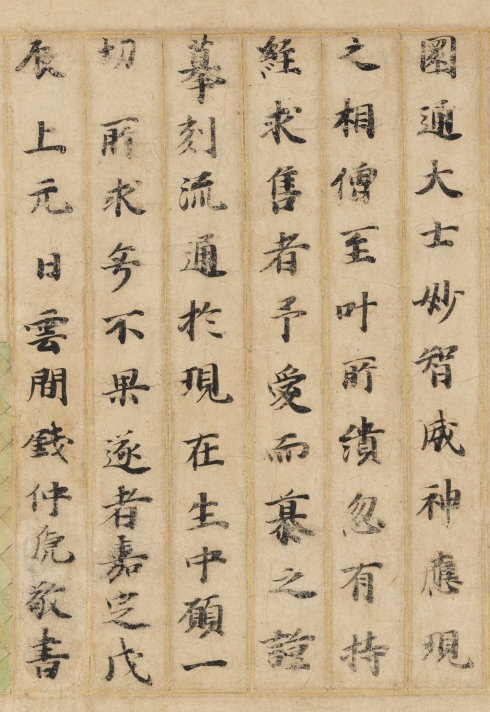 圓通大士妙智威神應現
之相僧至叶所缋忽有持
經求售者予愛而慕之謹
摹刻流通於現在生中願一
切所求無不果遂者嘉定戊
辰上元日雲間錢仲虎敬書